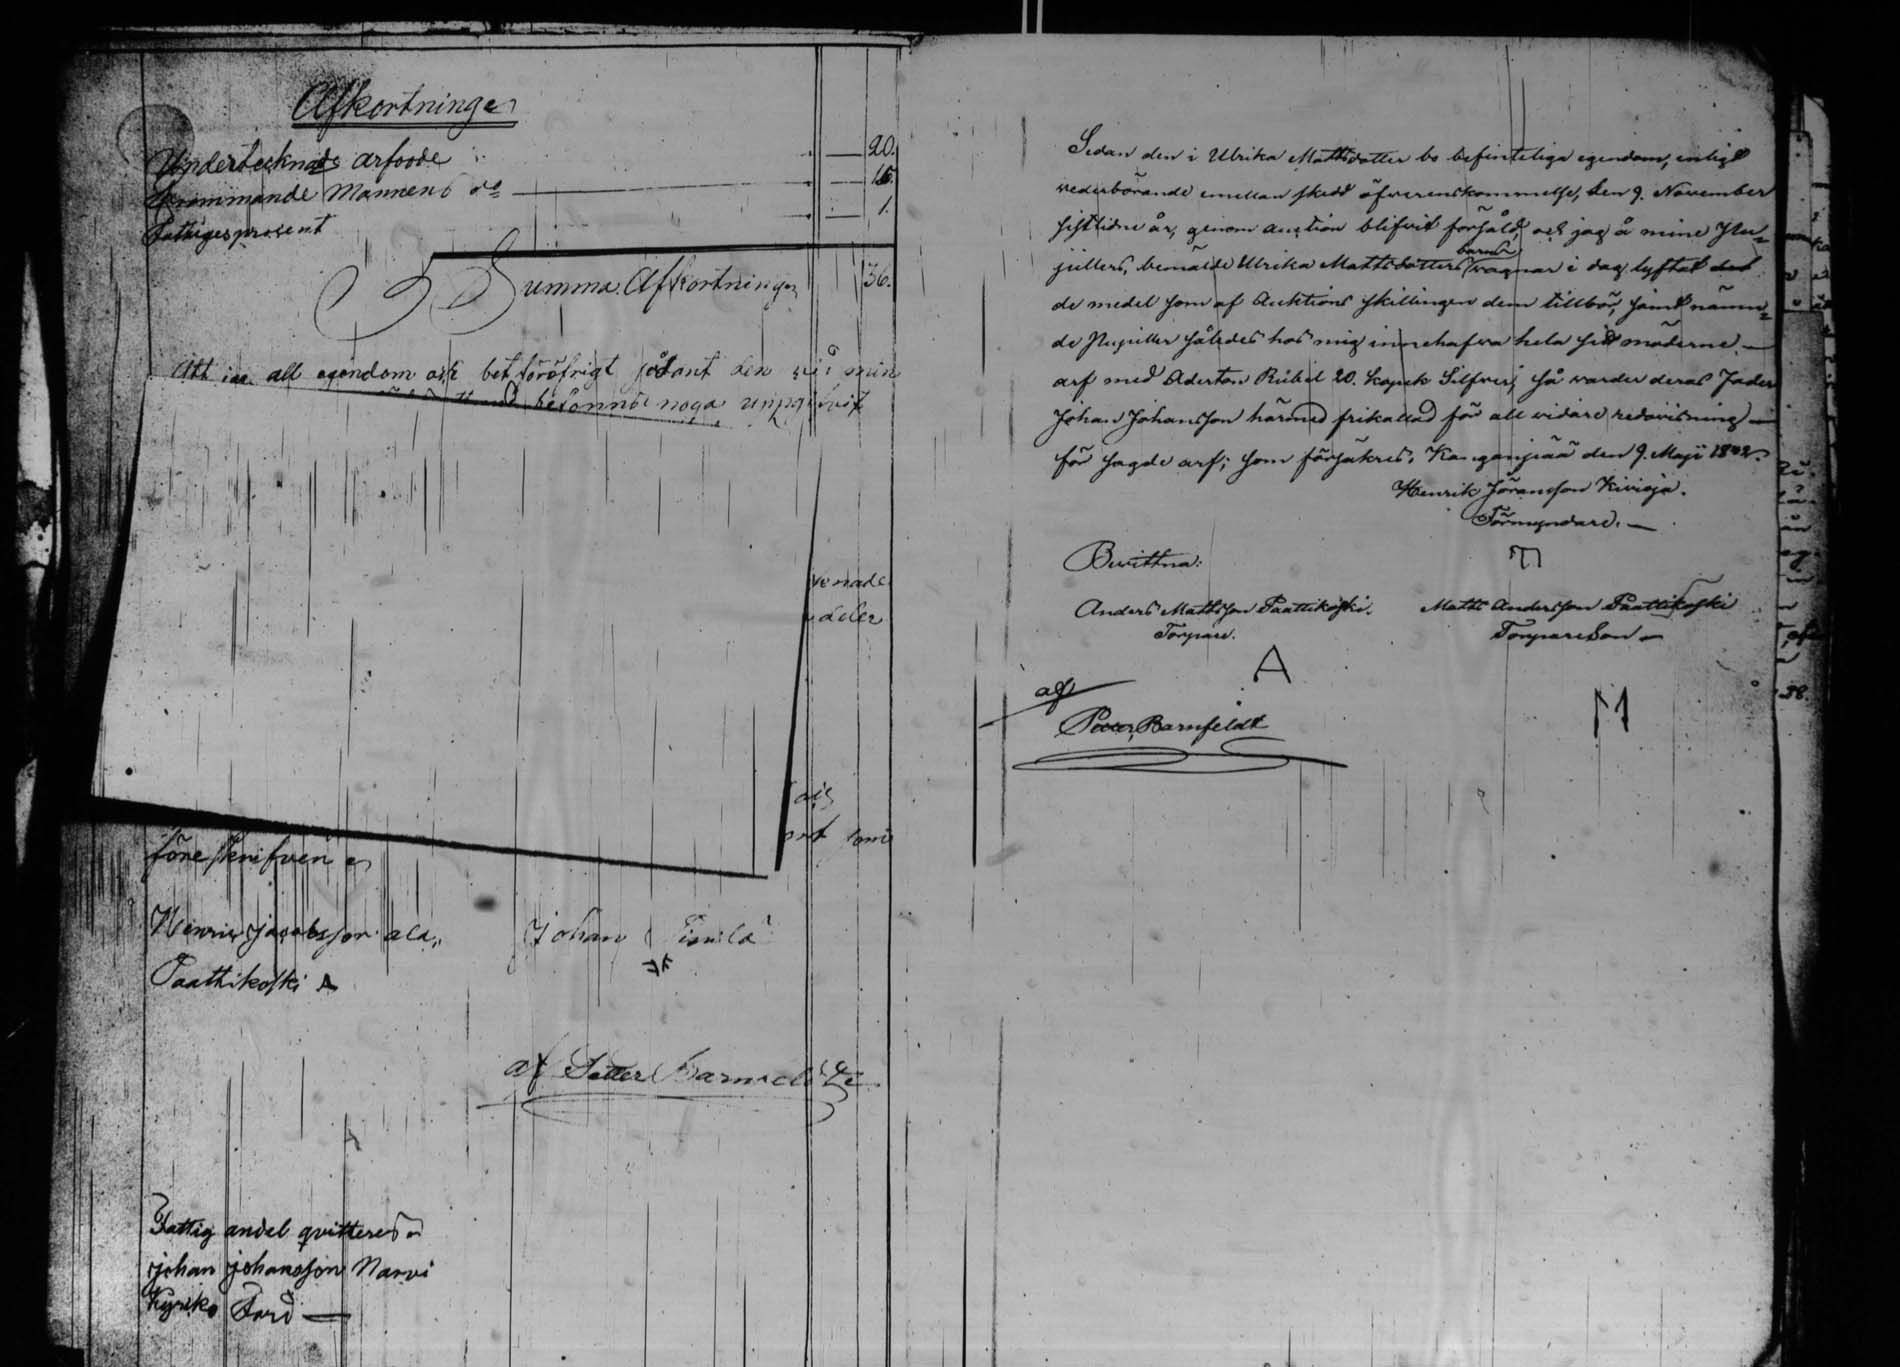 Afkortninge
Undertecknads arfvode 20.
Wärommande Mannens do 15.
Fattigesprosent 1.
Summa Afkortninge 36.
Att all egendom och bet föröfrigt sådant den vid min
noga uppgifvit
föreskrifven
Henric Jacobsson ala
Johan
Paattikoski
af Petter
Fattig andel qvitteras
Johan Johansson Narvi
Kyrko Vard
Sedan den i Ulrika Mattsdotter bo befinteliga egendom, enligt
vederbörande emellan skedd öfverenskommelse, den 9. November
sistlidne år, genom auction blifvit försåld, och jag å mine Pu-
pillers, bemälde Ulrika Mattsdotters barns vägnar i dag lyftat
de medel som af Auktions skillingen dem tillbör, samt nämn-
de Pupiller således hos mig innehafva hela sitt möderne
arf med Aderton Rubel 20. Kopek Silfver; så varder deras Fader
Johan Johansson härmed frikallad för all vidare redovisning
för sagde arf; som försäkres, Kanganpää den 9. Maji 1842.
Henrik Jöransson Kivioja.
Förmyndare.
Bevittna:
Anders Mattsson Paattikoski. Matts Andersson Paattikoski
Torpare. Torpareson
A
M
af
Petter Barnfeldt